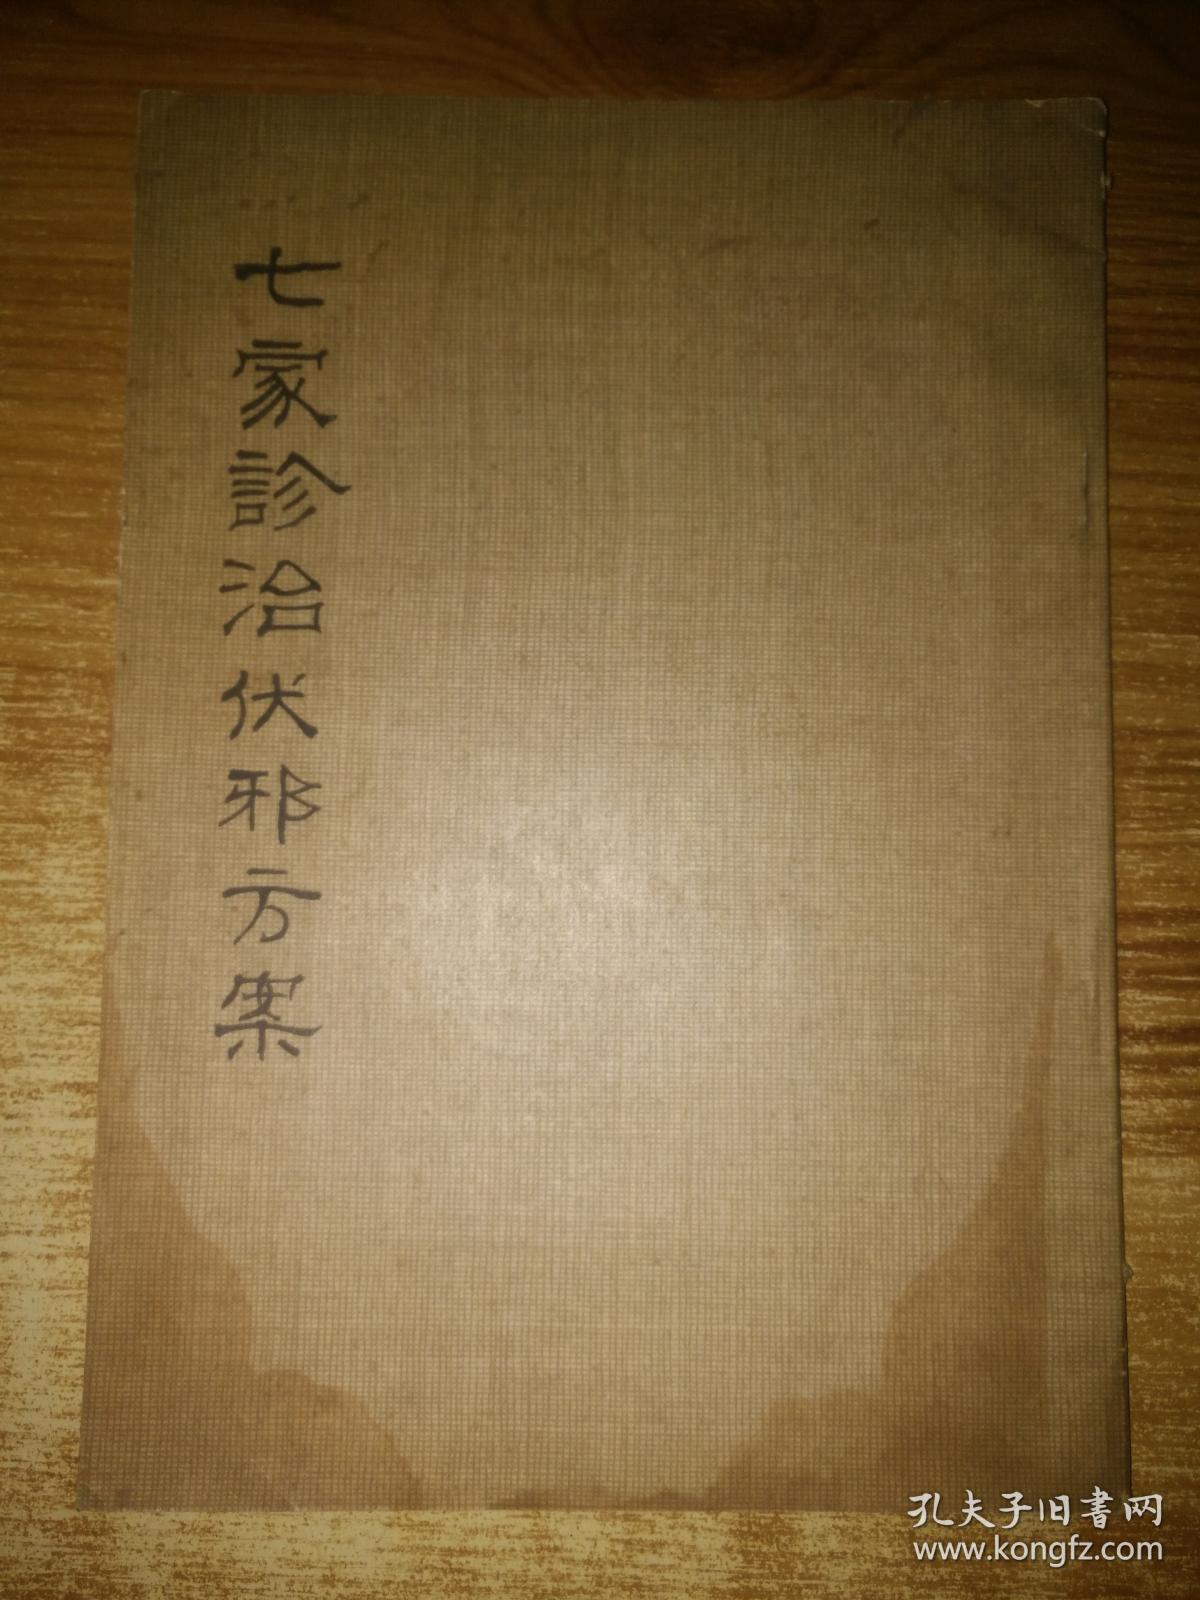 七家診治伏邪方案
孔夫子旧書网
www.kongfz.com